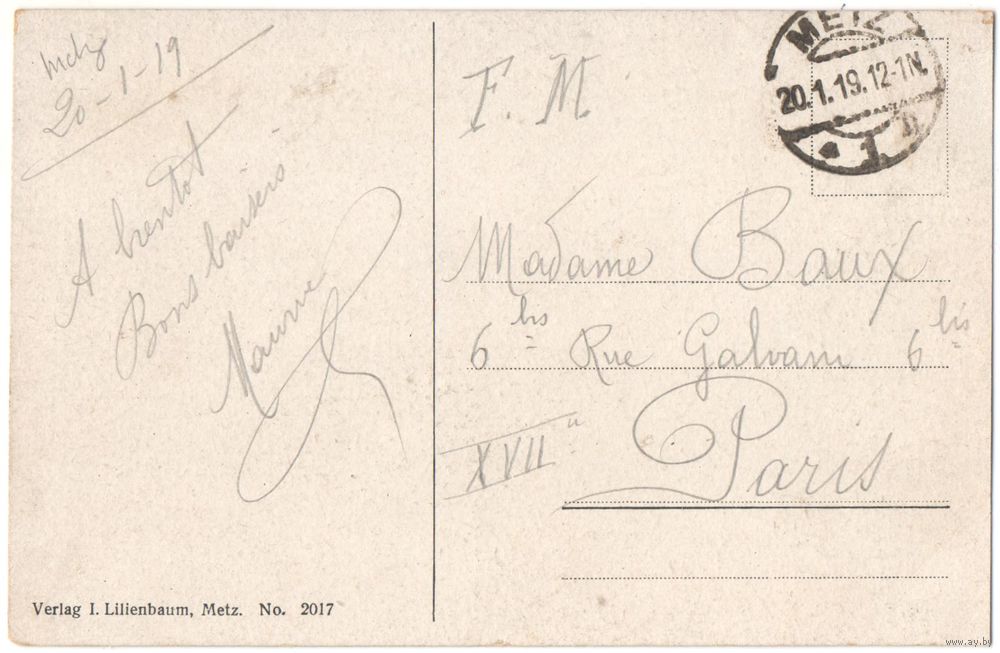 Metz
20-1-19
A bientot
Bons baisers
Maurice
F. M.
METZ
20.1.19.12-1N.
* 1. n
Madame Baux
6 bis Rue Galvani 6 bis
XVII e
Paris
Verlag I. Lilienbaum, Metz. No. 2017
www.ay.by